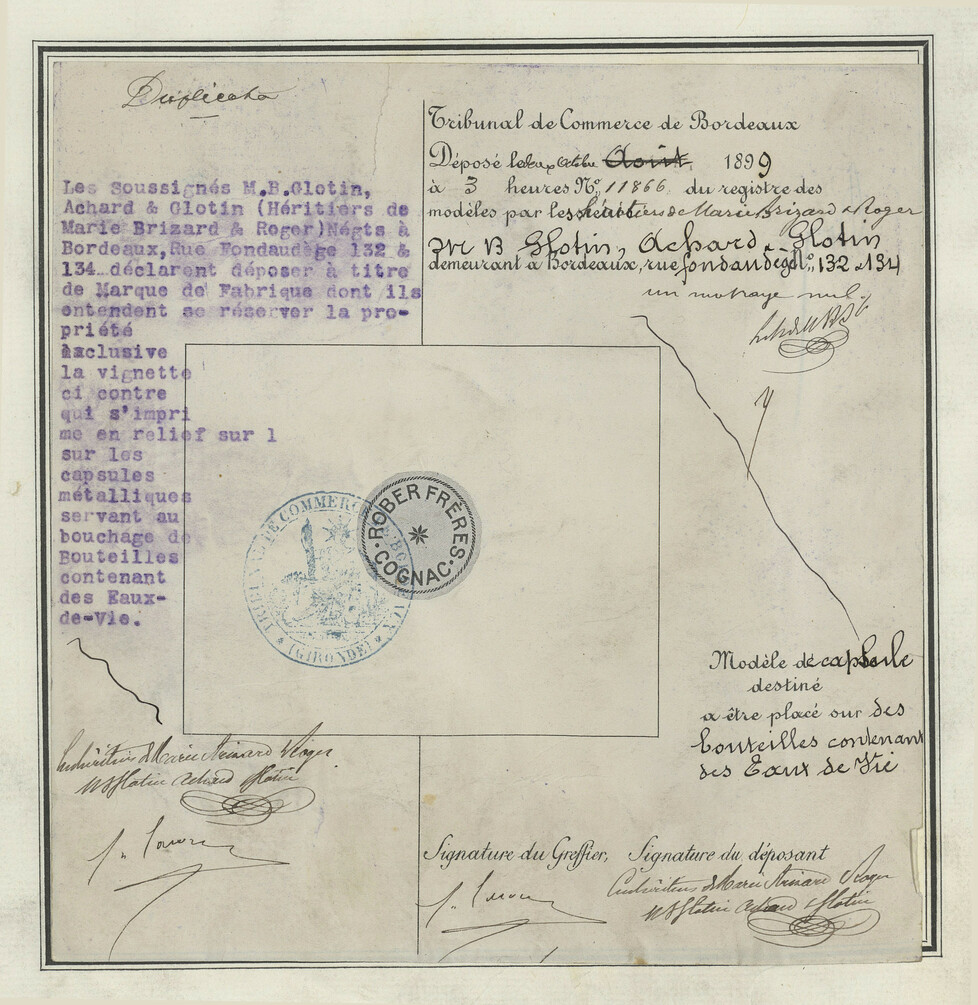 Duplicata
Les Soussignés M.B.Glotin,
Achard & Glotin (Héritiers de
Marie Brizard & Roger)Négts à
Bordeaux,Rue Fondaudège 132 &
134 déclarent déposer à titre
de Marque de Fabrique dont ils
entendent se réserver la pro-
priété
exclusive
la vignette
ci contre
qui s'impri
me en relief sur l
sur les
capsules
métalliques
servant au
bouchage de
Bouteilles
contenant
des Eaux-
de-Vie.
Tribunal de Commerce de Bordeaux
Déposé le deux Octobre Août 1899
à 3 heures Nº 11866 du registre des
modèles par les héritiers de Marie Brizard & Roger
M B Glotin, Achard & Glotin
demeurant à Bordeaux, rue fondaudège Nº 132 & 134
un mot rayé nul
ROBER FRÈRES
COGNAC
TRIBUNAL DE COMMERCE DE BORDEAUX
(GIRONDE)
Modèle de capsule
destiné
a être placé sur des
bouteilles contenant
des Eaux de Vie
Marie Brizard & Roger
MB Glotin Achard & Glotin
Signature du Greffier, Signature du déposant
Marie Brizard & Roger
MB Glotin Achard & Glotin